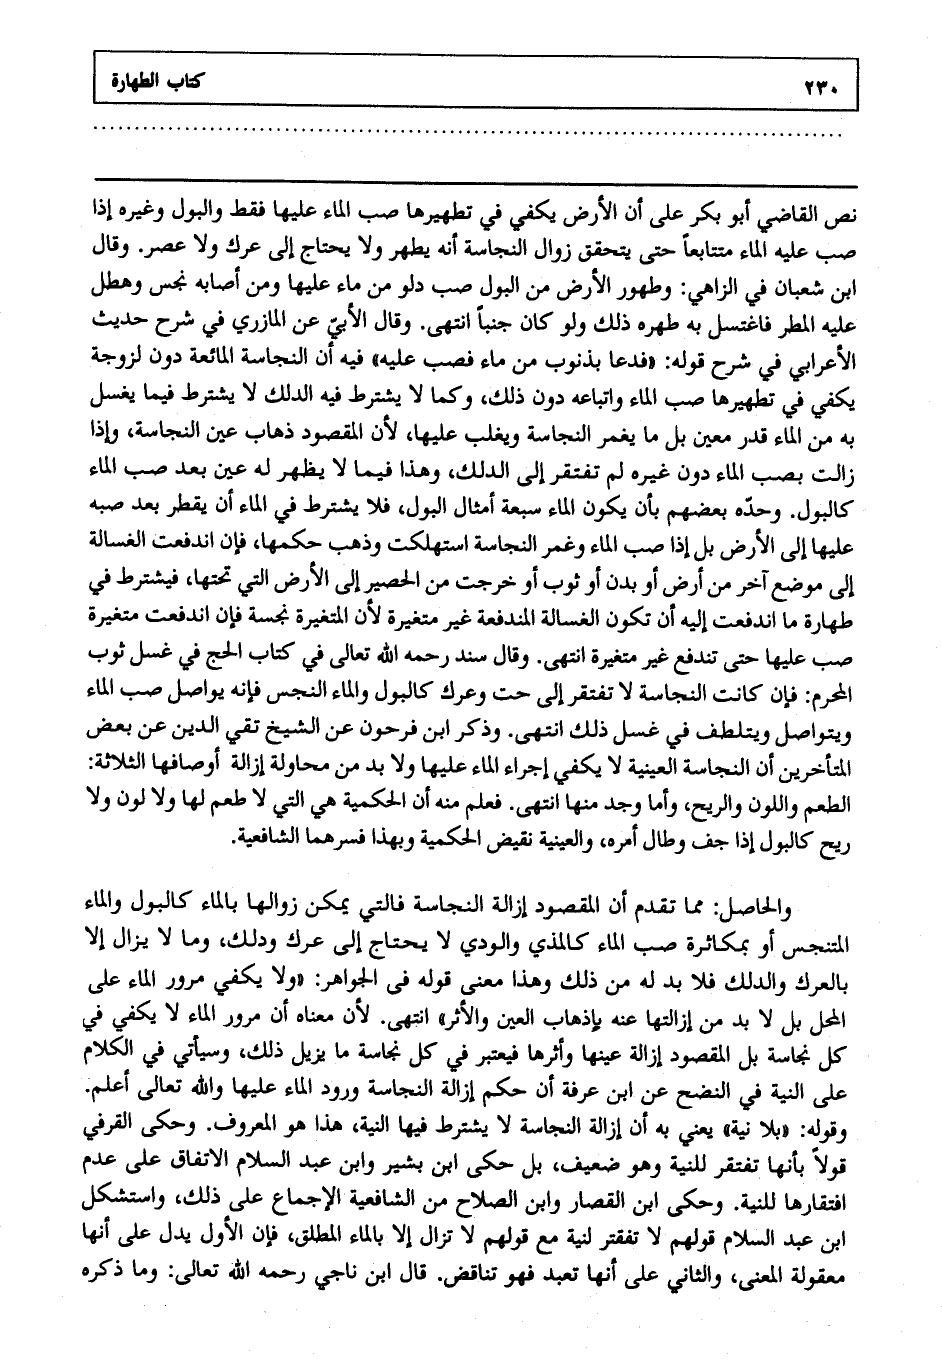 ٢٣٠
كتاب الطهارة
نص القاضي أبو بكر على أن الأرض يكفي في تطهيرها صب الماء عليها فقط والبول وغيره إذا
صب عليه الماء متتابعاً حتى يتحقق زوال النجاسة أنه يطهر ولا يحتاج إلى عرك ولا عصر. وقال
ابن شعبان في الزاهي: وطهور الأرض من البول صب دلو من ماء عليها ومن أصابه نجس وهطل
عليه المطر فاغتسل به طهره ذلك ولو كان جنباً انتهى. وقال الأبيّ عن المازري في شرح حديث
الأعرابي في شرح قوله: «فدعا بذنوب من ماء فصب عليه» فيه أن النجاسة المائعة دون لزوجة
يكفي في تطهيرها صب الماء واتباعه دون ذلك، وكما لا يشترط فيه الدلك لا يشترط فيما يغسل
به من الماء قدر معين بل ما يغمر النجاسة ويغلب عليها، لأن المقصود ذهاب عين النجاسة، وإذا
زالت بصب الماء دون غيره لم تفتقر إلى الدلك، وهذا فيما لا يظهر له عين بعد صب الماء
كالبول. وحدّه بعضهم بأن يكون الماء سبعة أمثال البول، فلا يشترط في الماء أن يقطر بعد صبه
عليها إلى الأرض بل إذا صب الماء وغمر النجاسة استهلكت وذهب حكمها، فإن اندفعت الغسالة
إلى موضع آخر من أرض أو بدن أو ثوب أو خرجت من الحصير إلى الأرض التي تحتها، فيشترط في
طهارة ما اندفعت إليه أن تكون الغسالة المندفعة غير متغيرة لأن المتغيرة نجسة فإن اندفعت متغيرة
صب عليها حتى تندفع غير متغيرة انتهى. وقال سند رحمه الله تعالى في كتاب الحج في غسل ثوب
المحرم: فإن كانت النجاسة لا تفتقر إلى حت وعرك كالبول والماء النجس فإنه يواصل صب الماء
ويتواصل ويتلطف في غسل ذلك انتهى. وذكر ابن فرحون عن الشيخ تقي الدين عن بعض
المتأخرين أن النجاسة العينية لا يكفي إجراء الماء عليها ولا بد من محاولة إزالة أوصافها الثلاثة:
الطعم واللون والريح، وأما وجد منها انتهى. فعلم منه أن الحكمية هي التي لا طعم لها ولا لون ولا
ريح كالبول إذا جف وطال أمره، والعينية نقيض الحكمية وبهذا فسرهما الشافعية.
والحاصل: مما تقدم أن المقصود إزالة النجاسة فالتي يمكن زوالها بالماء كالبول والماء
المتنجس أو بمكاثرة صب الماء كالمذي والودي لا يحتاج إلى عرك ودلك، وما لا يزال إلا
بالعرك والدلك فلا بد له من ذلك وهذا معنى قوله في الجواهر: «ولا يكفي مرور الماء على
المحل بل لا بد من إزالتها عنه بإذهاب العين والأثر» انتهى. لأن معناه أن مرور الماء لا يكفي في
كل نجاسة بل المقصود إزالة عينها وأثرها فيعتبر في كل نجاسة ما يزيل ذلك، وسيأتي في الكلام
على النية في النضح عن ابن عرفة أن حكم إزالة النجاسة ورود الماء عليها والله تعالى أعلم.
وقوله: «بلا نية» يعني به أن إزالة النجاسة لا يشترط فيها النية، هذا هو المعروف. وحكى القرفي
قولاً بأنها تفتقر للنية وهو ضعيف، بل حكى ابن بشير وابن عبد السلام الاتفاق على عدم
افتقارها للنية. وحكى ابن القصار وابن الصلاح من الشافعية الإجماع على ذلك، واستشكل
ابن عبد السلام قولهم لا تفقتر لنية مع قولهم لا تزال إلا بالماء المطلق، فإن الأول يدل على أنها
معقولة المعنى، والثاني على أنها تعبد فهو تناقض. قال ابن ناجي رحمه الله تعالى: وما ذكره